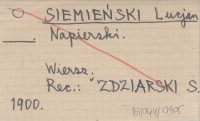 SIEMIEŃSKI Lucjan
Napierski.
Wiersz.
Rec.: ZDZIARSKI S.
1900.